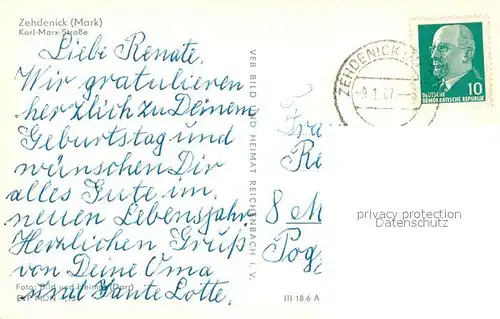 Zehdenick (Mark)
Karl-Marx-Straße
Liebe Renate.
Wir gratulieren
herzlich zu Deinem
Geburtstag und
wünschen Dir
alles Gute im
neuen Lebensjahr.
Herzlichen Gruß
von Deine Oma
und Tante Lotte.
Foto: Bild und Heimat
VEB BILD UND HEIMAT REICHENBACH i. V.
III 18 6 A
ZEHDENICK
-9.1.67
10
DEUTSCHE
DEMOKRATISCHE REPUBLIK
Fra
Re
8 M
Pog
privacy protection
Datenschutz